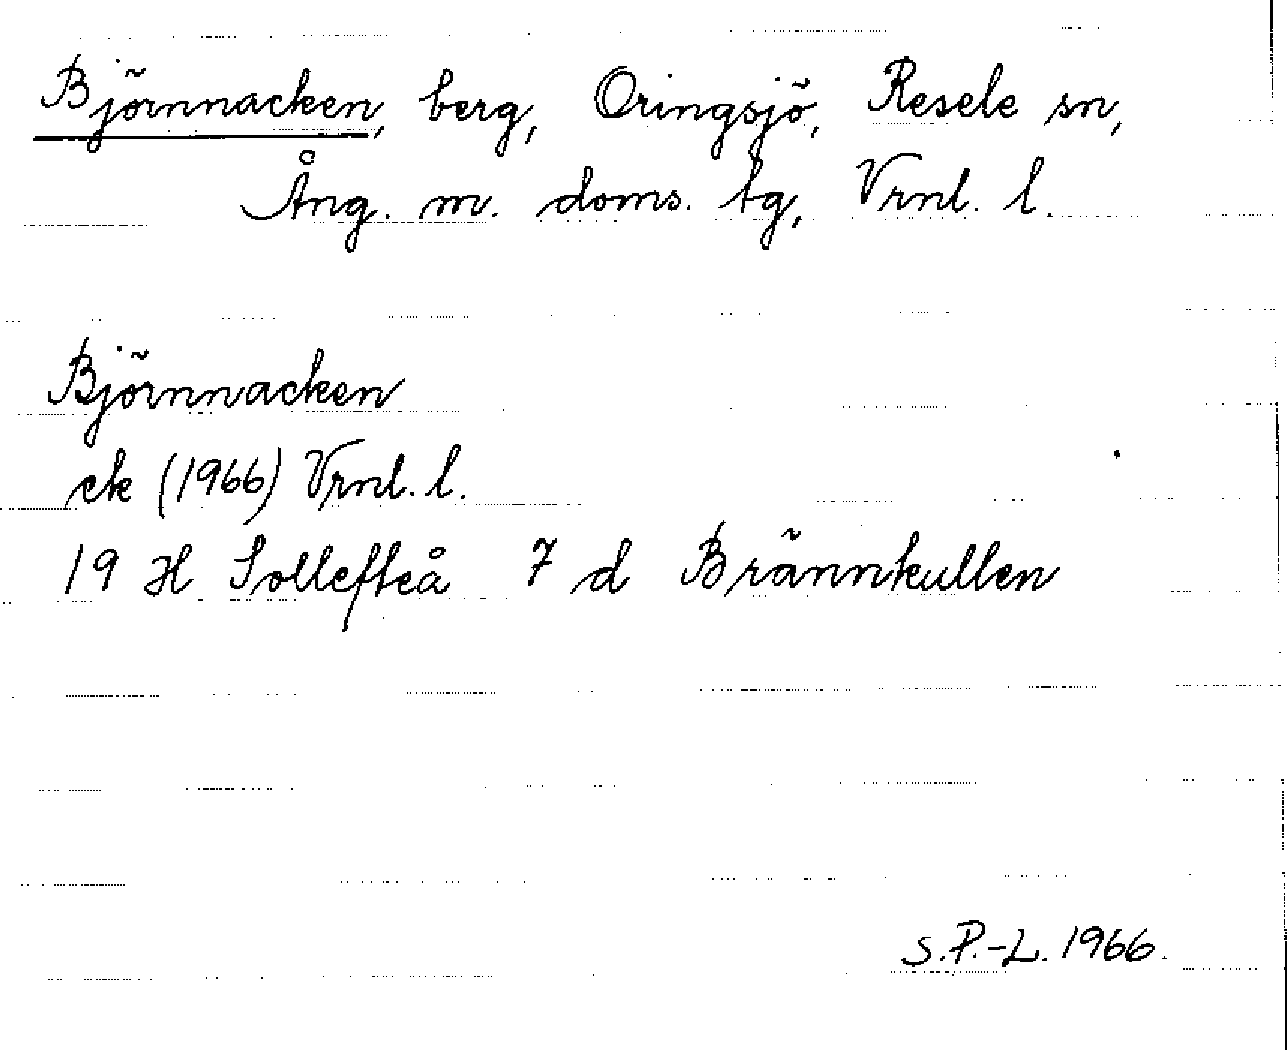 Björnnacken, berg, Oringsjö, Resele sn,
Ång. m. doms. tg, Vrnl. l.
Björnnacken
ek (1966) Vrnl. l.
19 H Sollefteå 7 d Brännkullen
S.P.-L. 1966.